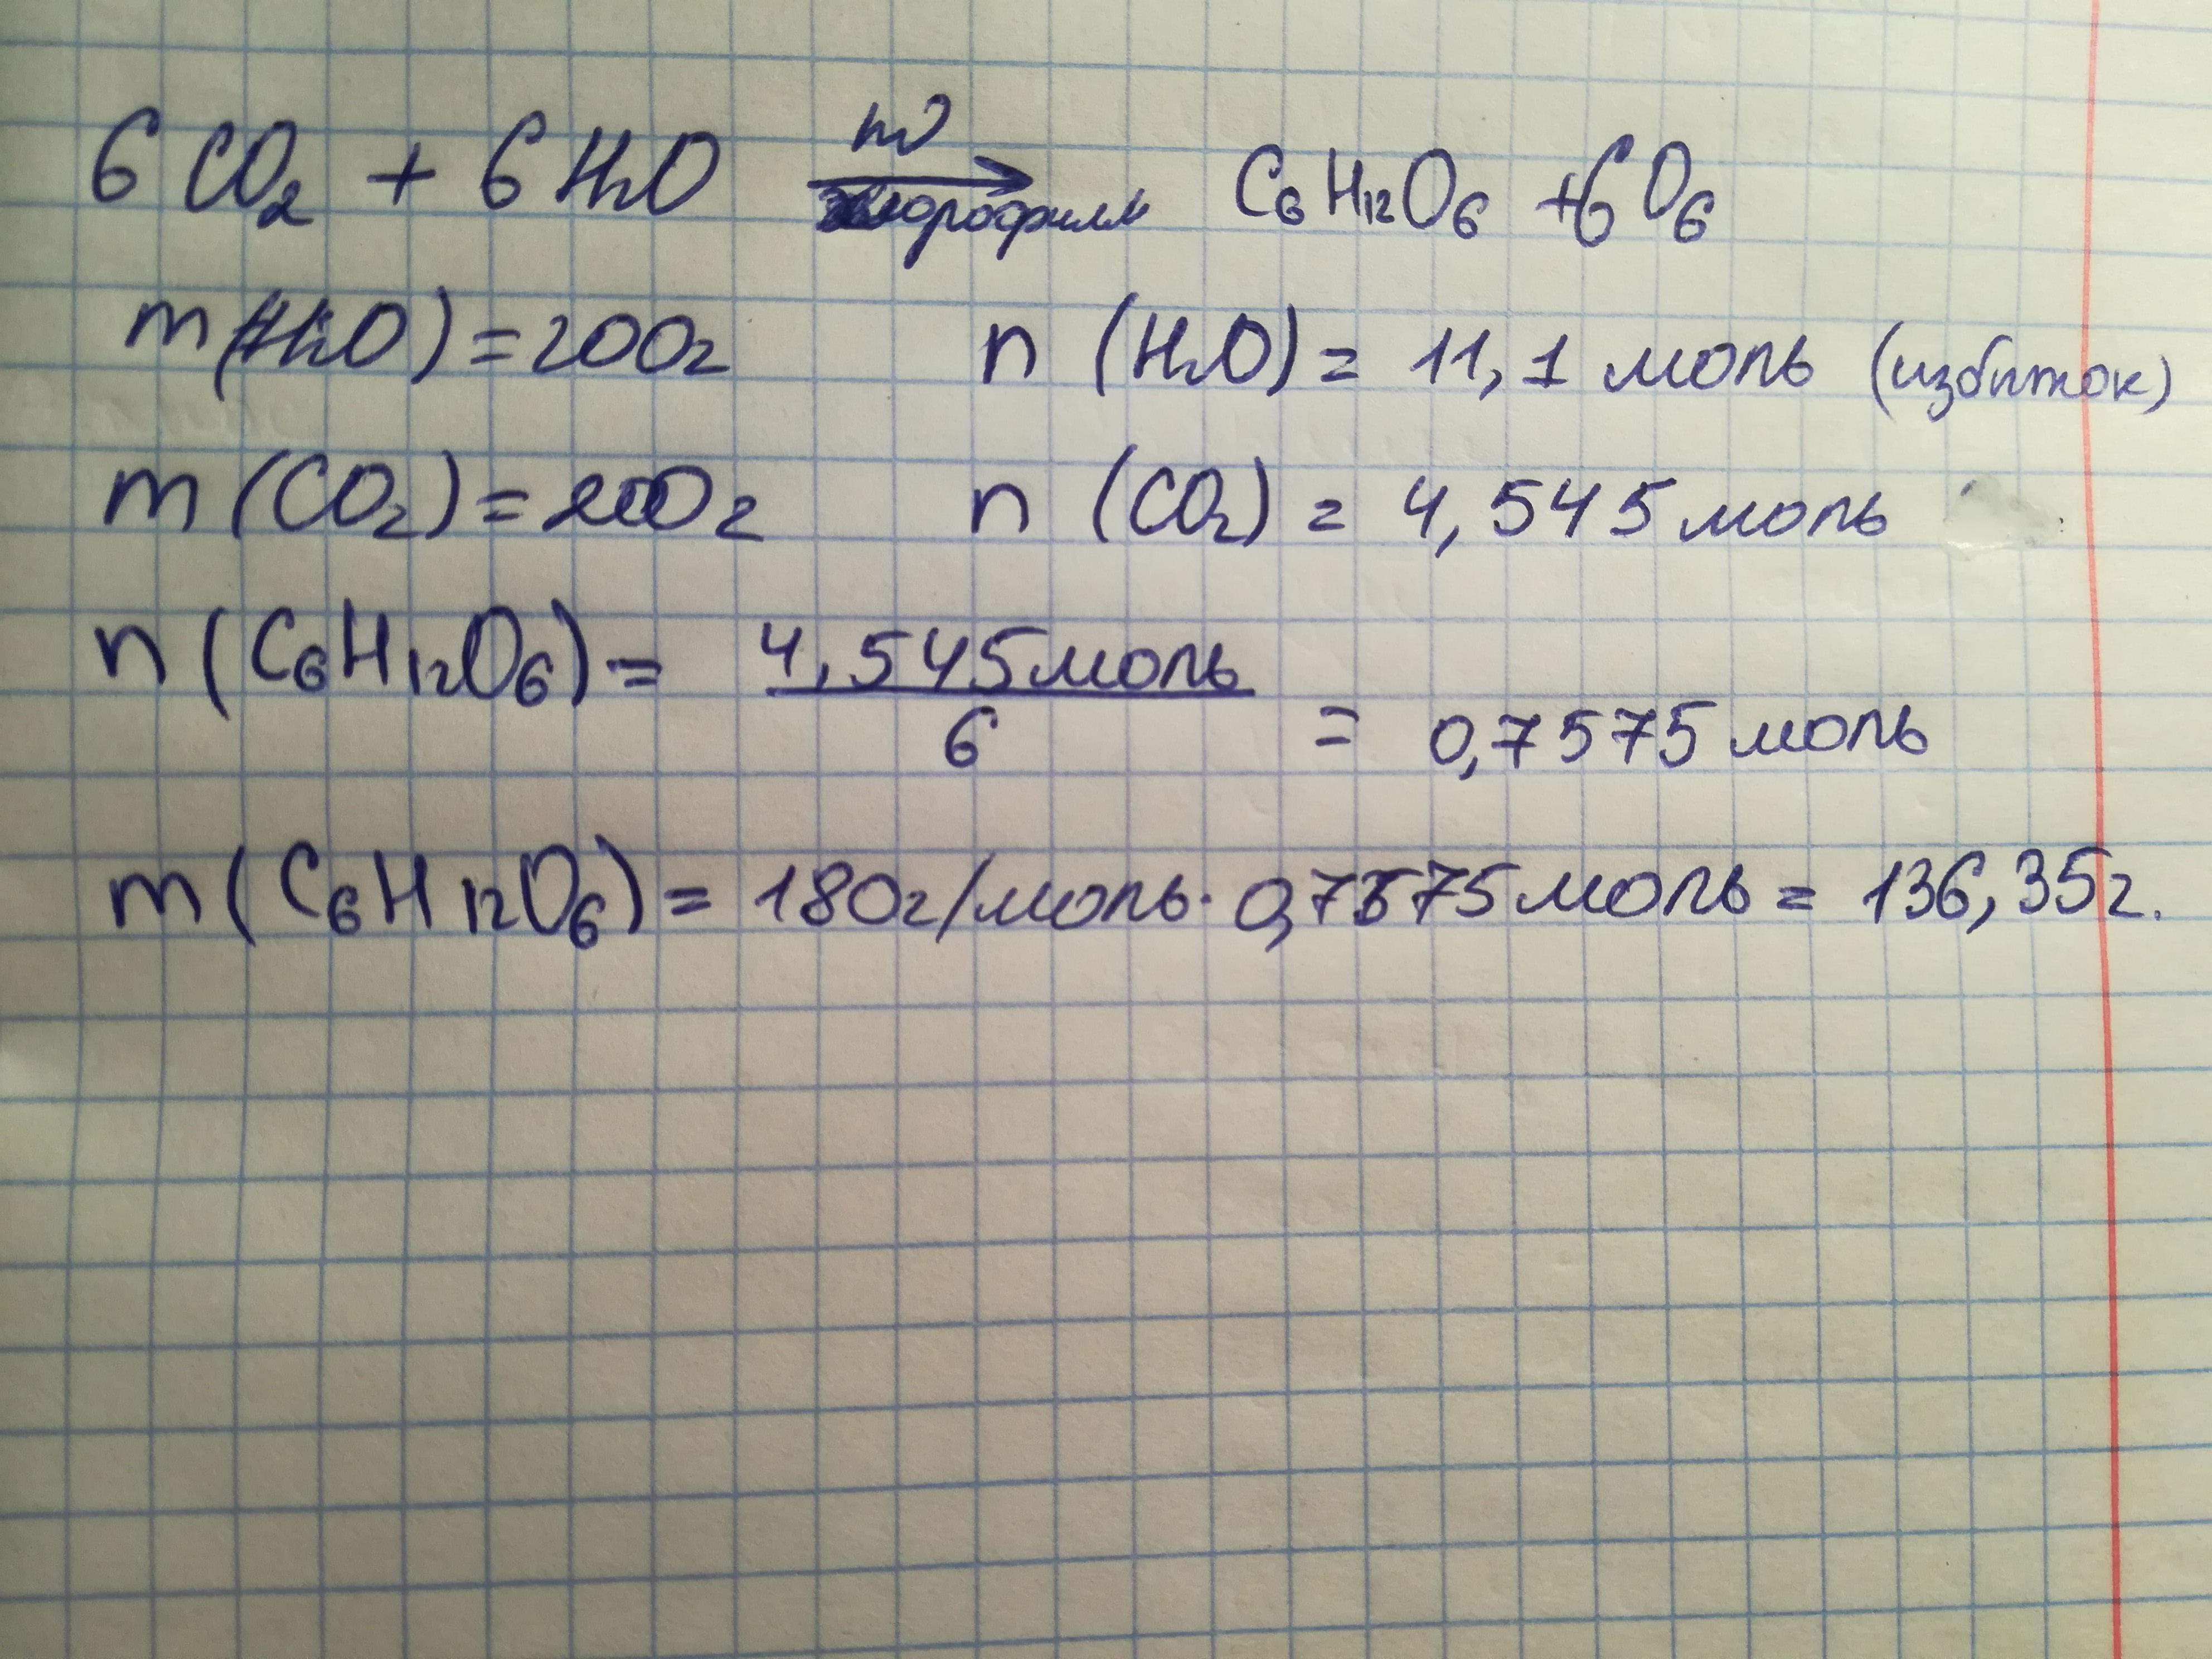 6CO₂ + 6H₂O hν → хлорофилл C₆H₁₂O₆ + 6O₆
m(H₂O) = 200г n (H₂O) = 11,1 моль (избиток)
m (CO₂) = 200г n (CO₂) = 4,545 моль
n (C₆H₁₂O₆) = 4,545моль / 6 = 0,7575 моль
m (C₆H₁₂O₆) = 180г/моль · 0,7575 моль = 136,35г.